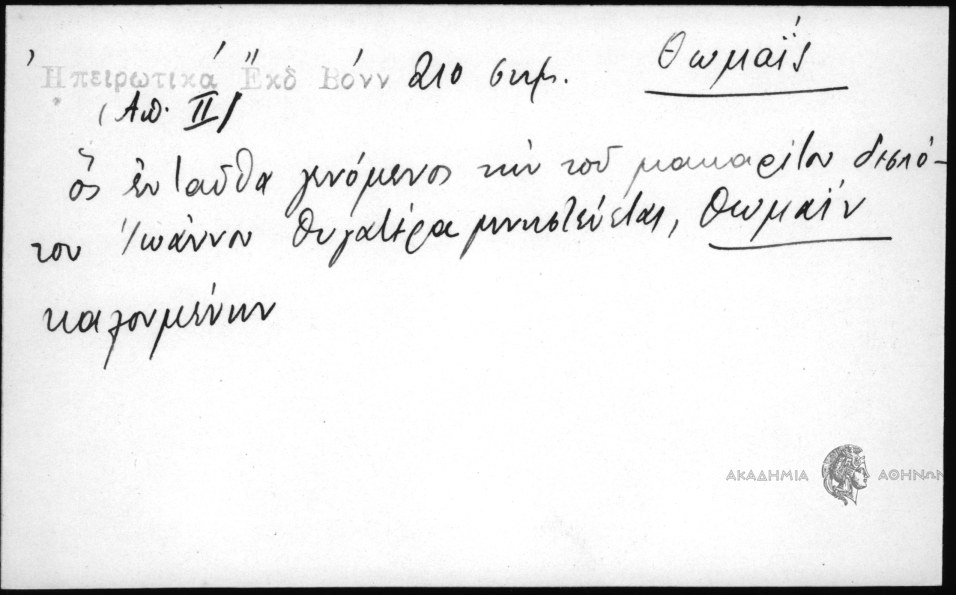 Ἠπειρωτικά Ἔκδ Βόνν 210 σημ. Θωμαΐς
(Απ. II)
ὃς ἐνταῦθα γενόμενος τὴν τοῦ μακαρίτου δεσπό-
του Ἰωάννου θυγατέρα μνηστεύεται, Θωμαΐν
καλουμένην
ΑΚΑΔΗΜΙΑ ΑΘΗΝΩΝ